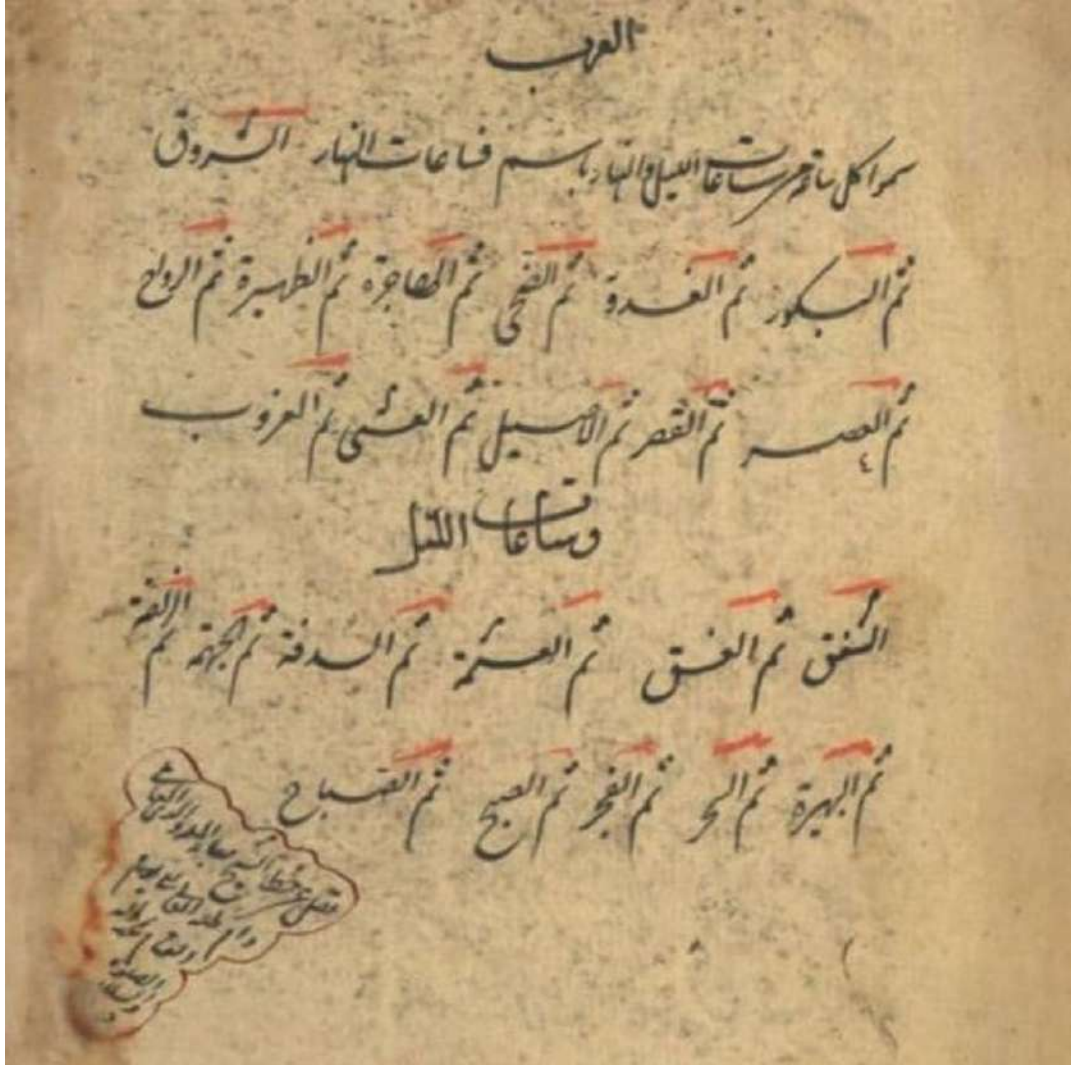 العرب
سموا كل ساعة من ساعات الليل والنهار باسم فساعات النهار الشروق
ثم البكور ثم الغدوة ثم الضحى ثم الهاجرة ثم الظهيرة ثم الرواح
ثم العصر ثم القصر ثم الأصيل ثم العشى ثم الغروب
وساعات الليل
الشفق ثم الغسق ثم العتمة ثم السدفة ثم الجهمة ثم الزلفة
ثم البهرة ثم السحر ثم الفجر ثم الصبح ثم الصباح
نقل من خط الشيخ بهاء الدين العاملي